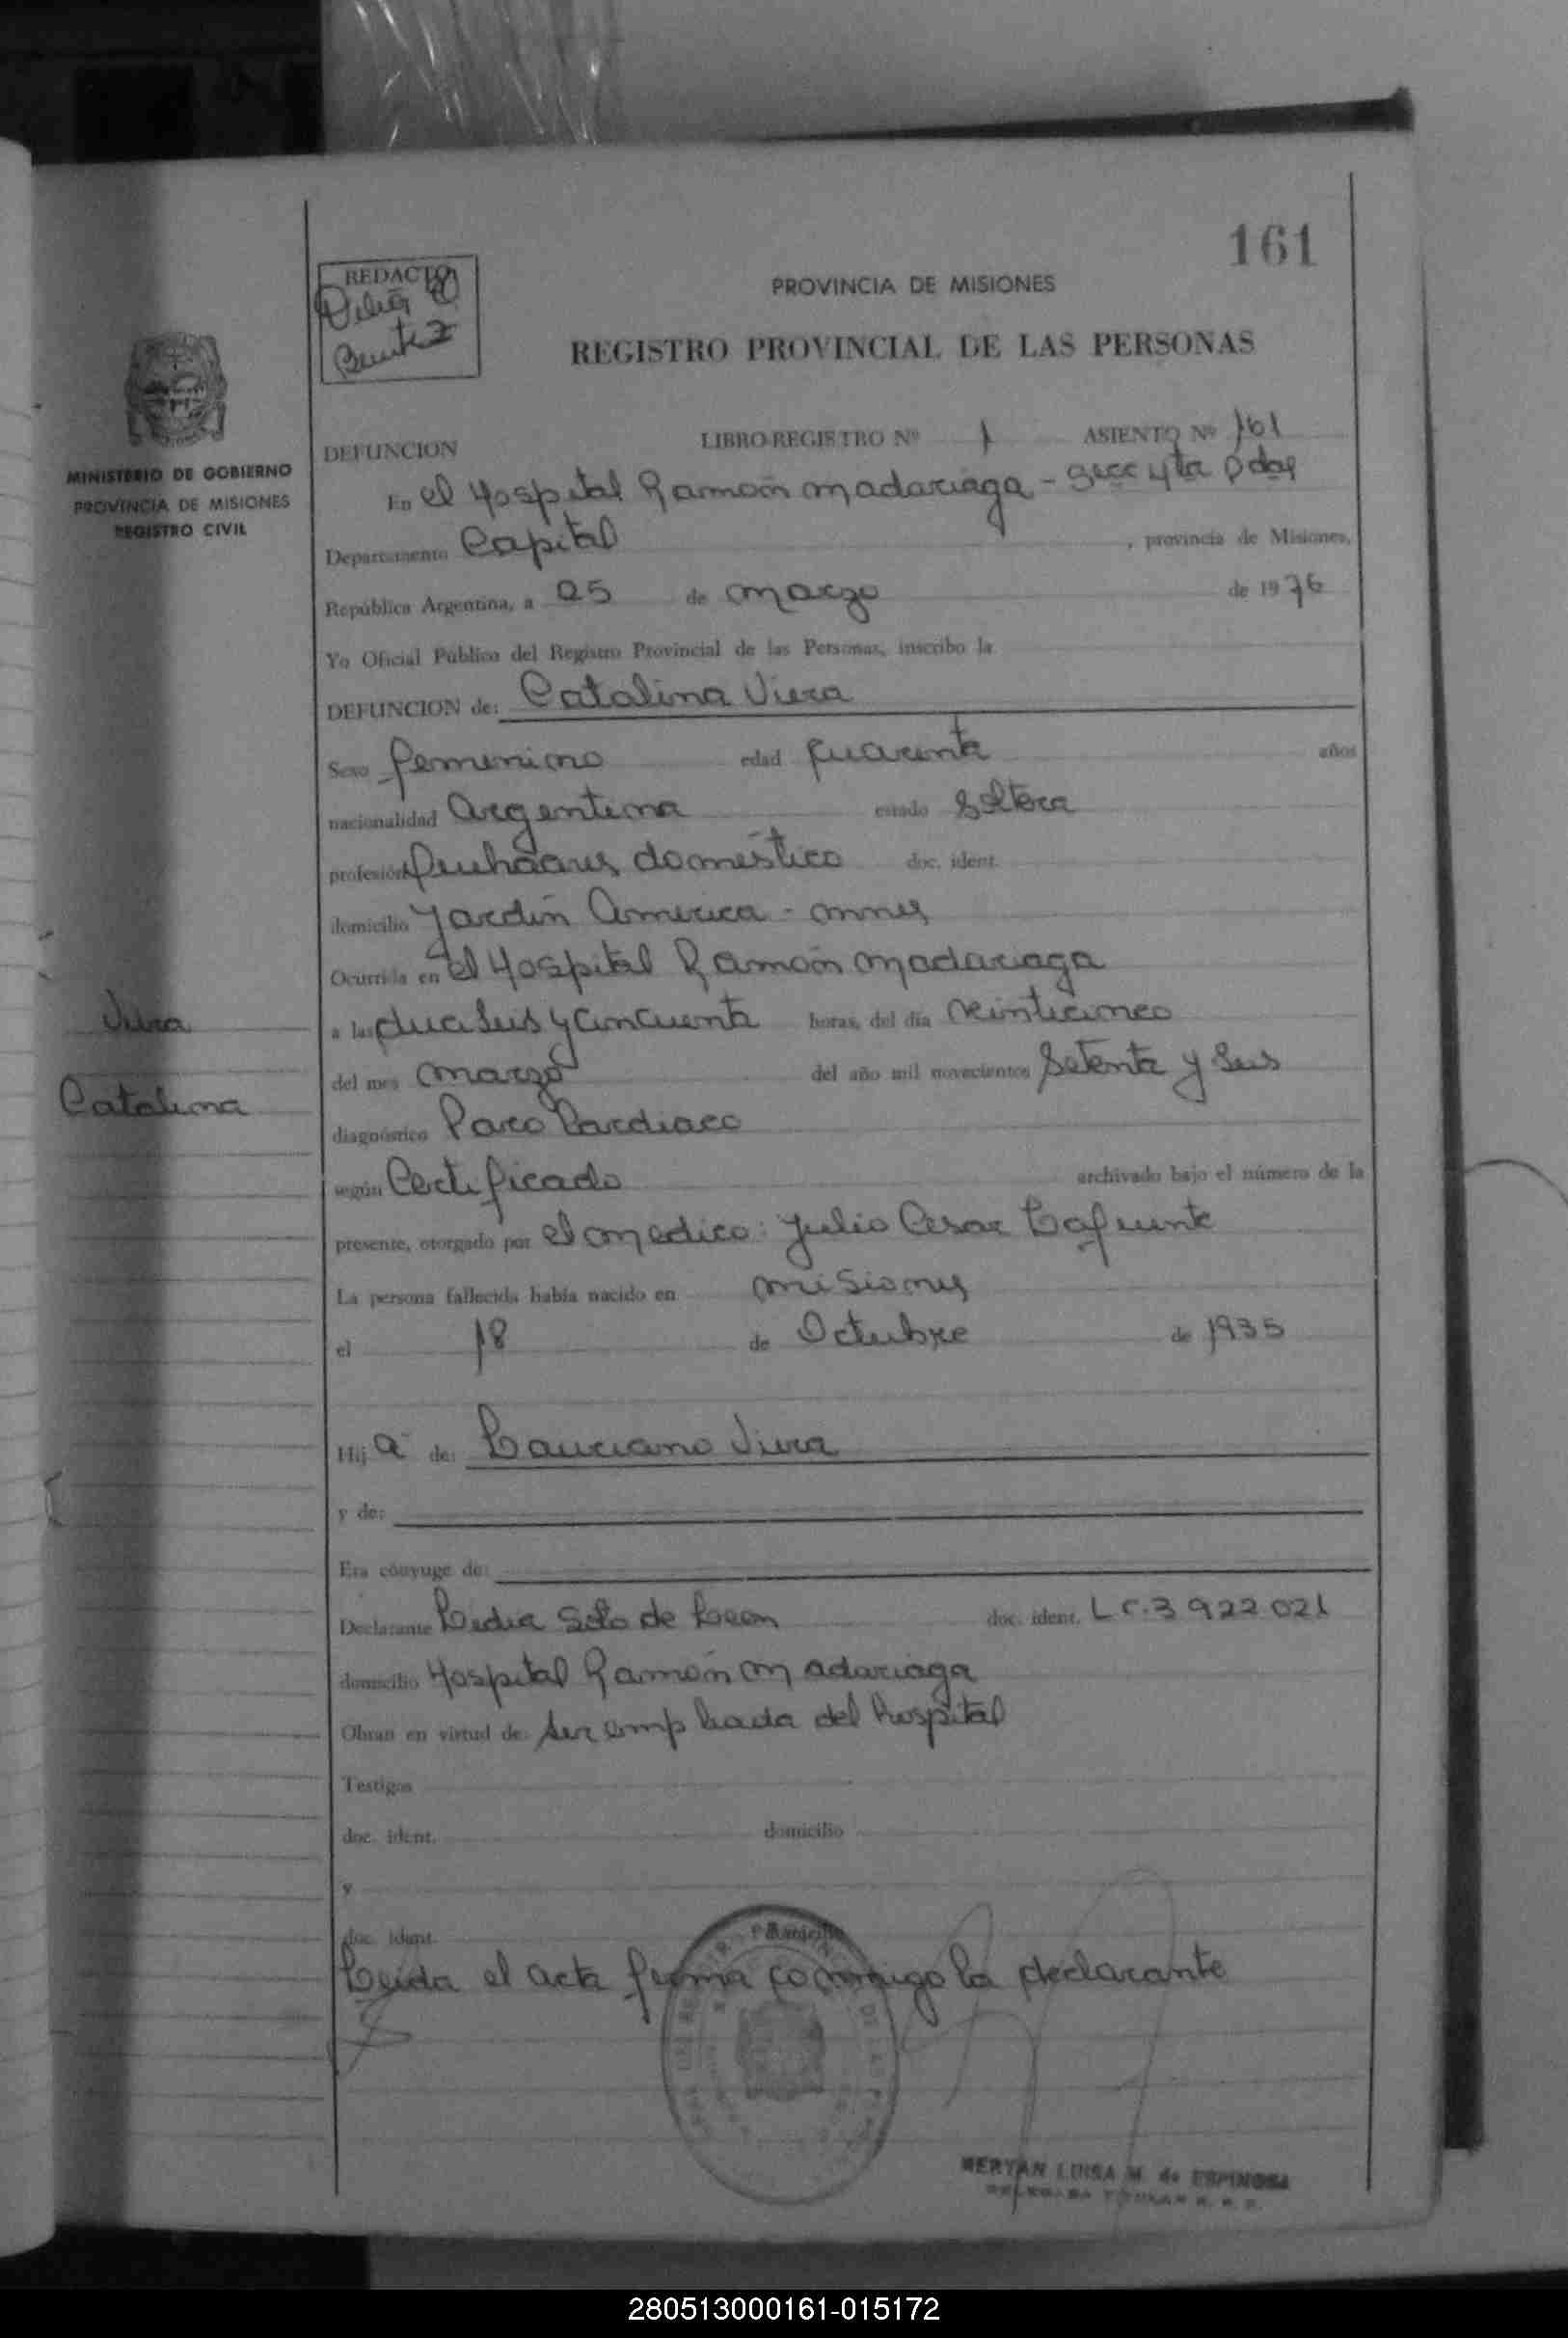 161
REDACTO
Benitez
PROVINCIA DE MISIONES
REGISTRO PROVINCIAL DE LAS PERSONAS
MINISTERIO DE GOBIERNO
PROVINCIA DE MISIONES
REGISTRO CIVIL
DEFUNCION LIBRO-REGISTRO Nº 1 ASIENTO Nº 161
En el Hospital Ramón Madariaga - Secc 4ta Pdas
Departamento Capital, provincia de Misiones,
República Argentina, a 25 de marzo de 1976
Yo Oficial Público del Registro Provincial de las Personas, inscribo la
DEFUNCION de: Catalina Viera
Sexo femenino edad cuarenta años
nacionalidad Argentina estado Soltera
profesión quehaceres doméstico doc. ident.
domicilio Jardín America - mnes
Ocurrida en el Hospital Ramón Madariaga
a las dieciseis y cincuenta horas, del día veinticinco
del mes marzo del año mil novecientos Setenta y Seis
diagnóstico Paro Cardiaco
según Certificado archivado bajo el número de la
presente, otorgado por el medico: Julio Cesar Lafuente
La persona fallecida había nacido en misiones
el 18 de Octubre de 1935
Hij a de: Lauriano Viera
y de:
Era cónyuge de:
Declarante Lidia Soto de Leon doc. ident. L C. 3 922 021
domicilio Hospital Ramón Madariaga
Obran en virtud de: ser empleada del hospital
Testigos
doc. ident. domicilio
y
doc. ident.
Leida el acta firma conmigo la declarante
Viera
Catalina
MERYAN LUISA M. de ESPINOSA
DELEGADA TITULAR
280513000161-015172